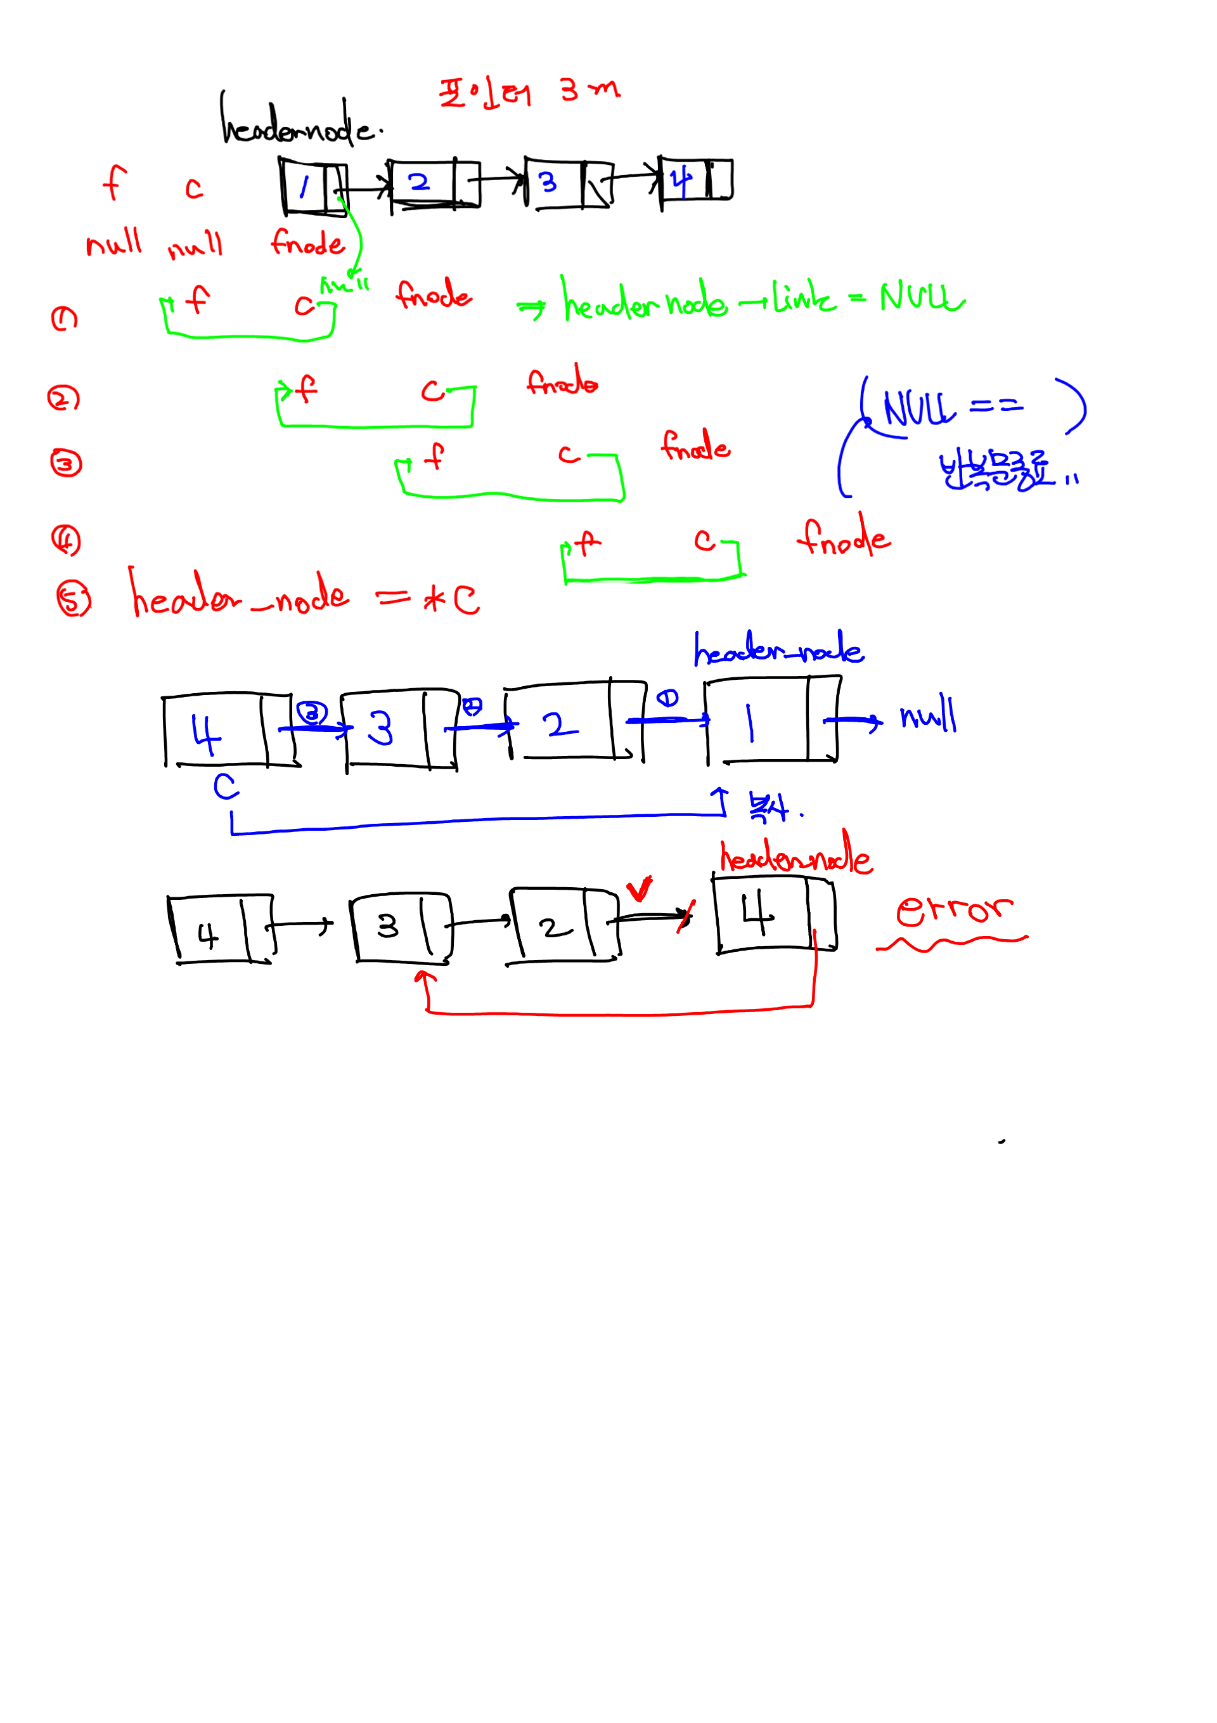 포인터 3개
headernode.
f c 1 2 3 4
null null fnode
① f c null fnode ⇒ headernode→Link = NULL
② f c fnode
(NULL == )
③ f c fnode
반복문종료..
④ f c fnode
⑤ header_node = *c
header_node
4 ③ 3 ② 2 ① 1 null
c
복사.
header_node
4 3 2 4 error